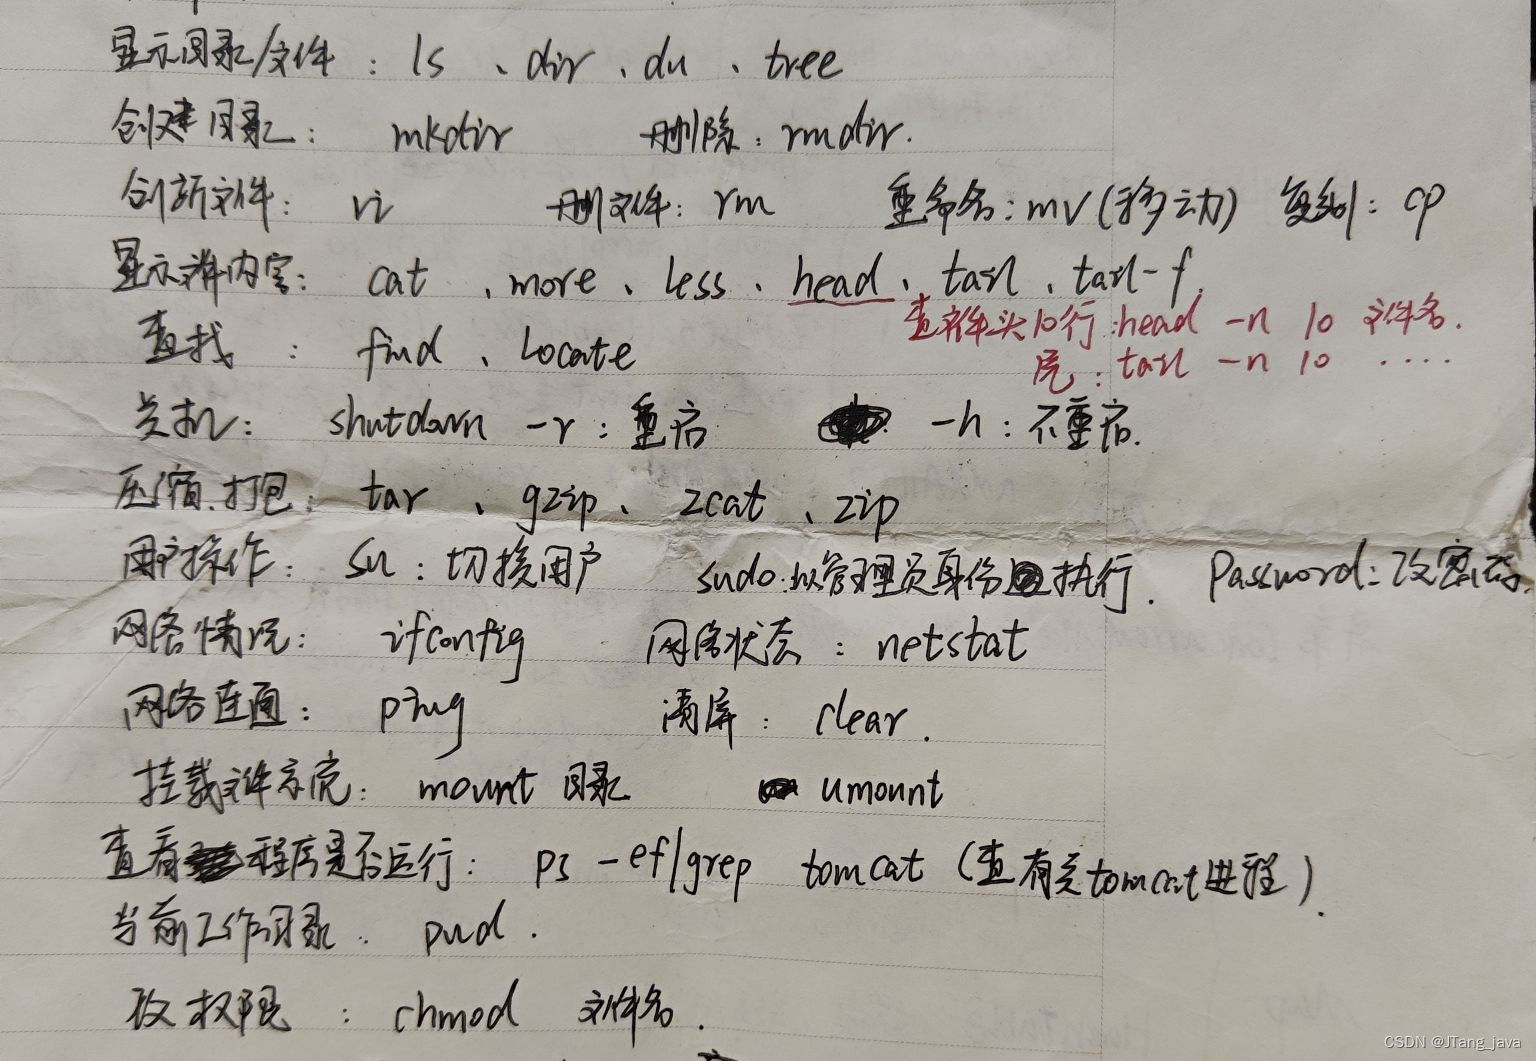 显示目录/文件：ls、dir、du、tree
创建目录：mkdir 删除：rmdir.
创新文件：vi 删文件：rm 重命名：mv(移动) 复制：cp
显示文件内容：cat、more、less、head、tail、tail-f.
查文件头10行:head -n 10 文件名.
查找：find、Locate
尾：tail -n 10 ····
关机：shutdown -r：重启 -h：不重启.
压缩.打包：tar、gzip、zcat、zip
用户操作：su：切换用户 sudo:以管理员身份执行. Password:改密码
网络情况：ifconfig 网络状态：netstat
网络连通：ping 清屏：clear.
挂载文件系统：mount 目录 umount
查看程序是否运行：ps -ef|grep tomcat (查有关tomcat进程).
当前工作目录：pwd.
改权限：chmod 文件名.
CSDN @JTang_java